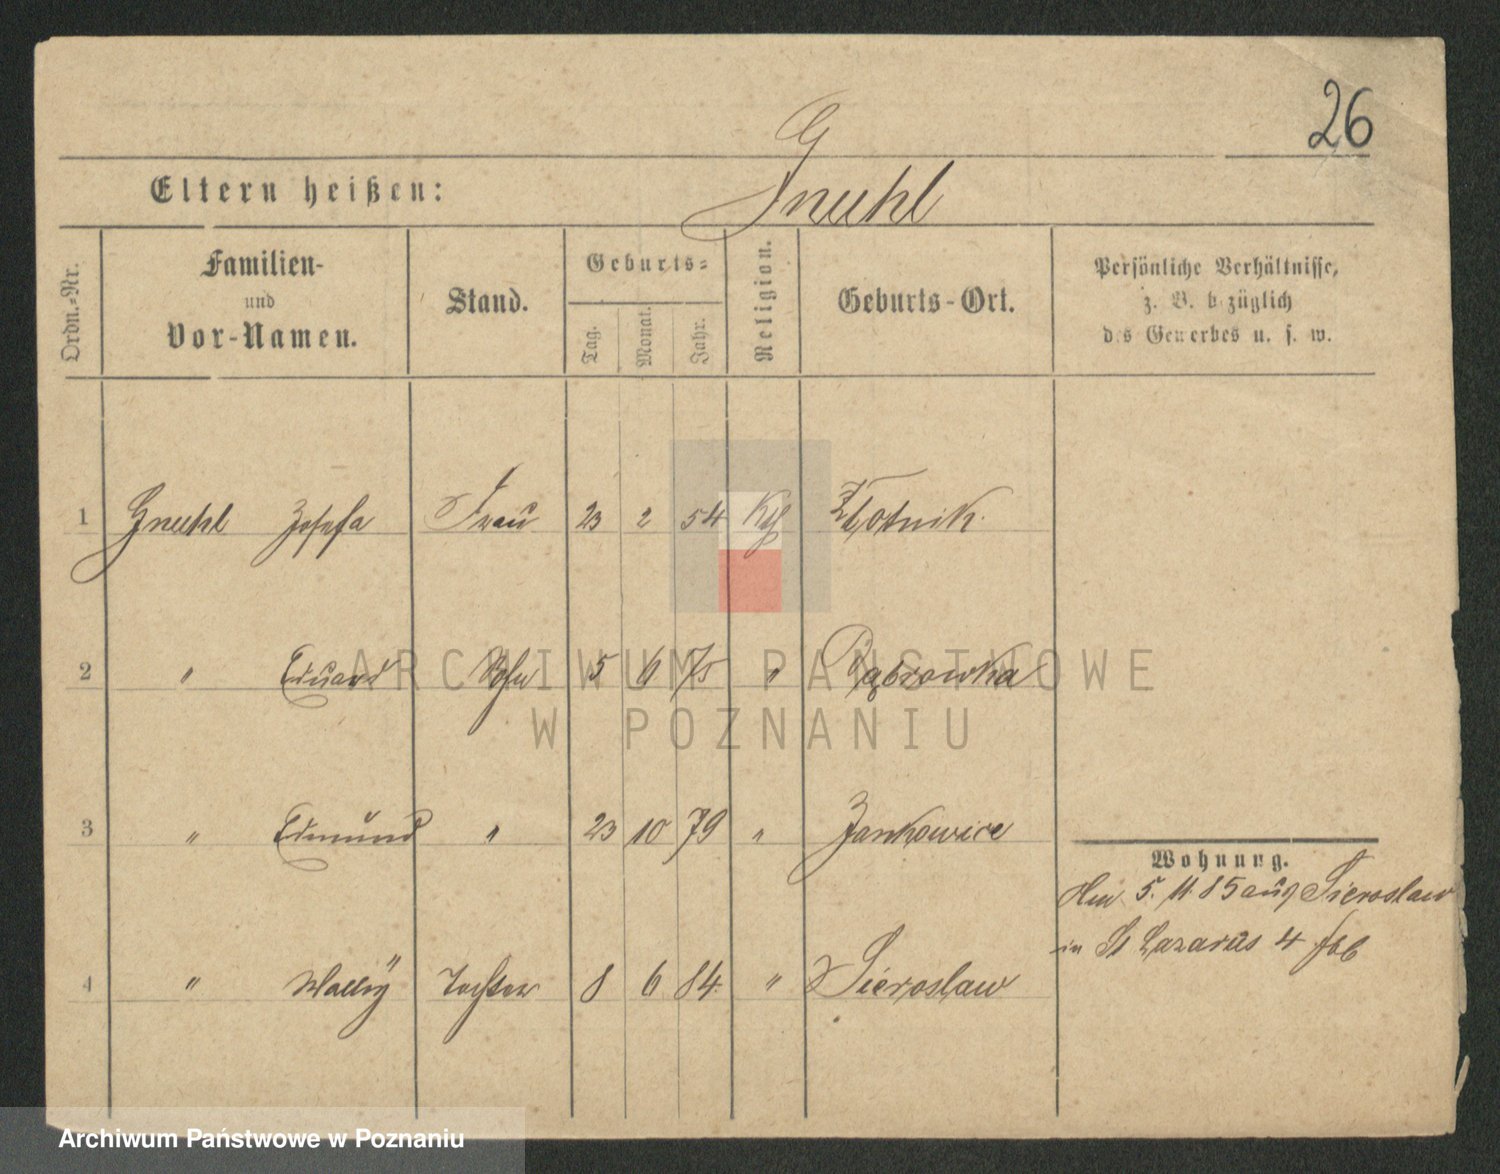 26
Eltern heißen: Gnuhl
Ordn.-Nr.
Familien- und Vor-Namen.
Stand.
Geburts-
Tag. Monat. Jahr.
Religion.
Geburts-Ort.
Persönliche Verhältnisse,
z. B. bezüglich
des Gewerbes u. s. w.
1 Gnuhl Josefa Frau 23 2 54 Kth Złotnik.
2 " Eduard Sohn 5 6 75 " Dąbrowka
3 " Edmund " 23 10 79 " Jankowice
Wohnung.
5. 11. 85 aus Sieroslaw
in St Lazarus 4
4 " Wally Tochter 8 6 84 " Sieroslaw
ARCHIWUM PAŃSTWOWE
W POZNANIU
Archiwum Państwowe w Poznaniu